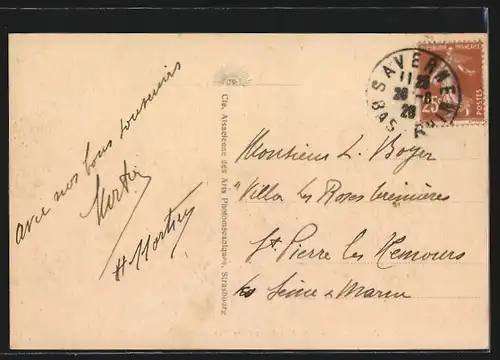 avec nos bons souvenirs
Cie. Alsacienne des Arts Photomécaniques, Strasbourg
SAVERNE
BAS RHIN
26 -6
26
RÉPUBLIQUE FRANÇAISE
25c
POSTES
Monsieur L. Boyer
Villa les Roses
St Pierre les Nemours
Seine & Marne